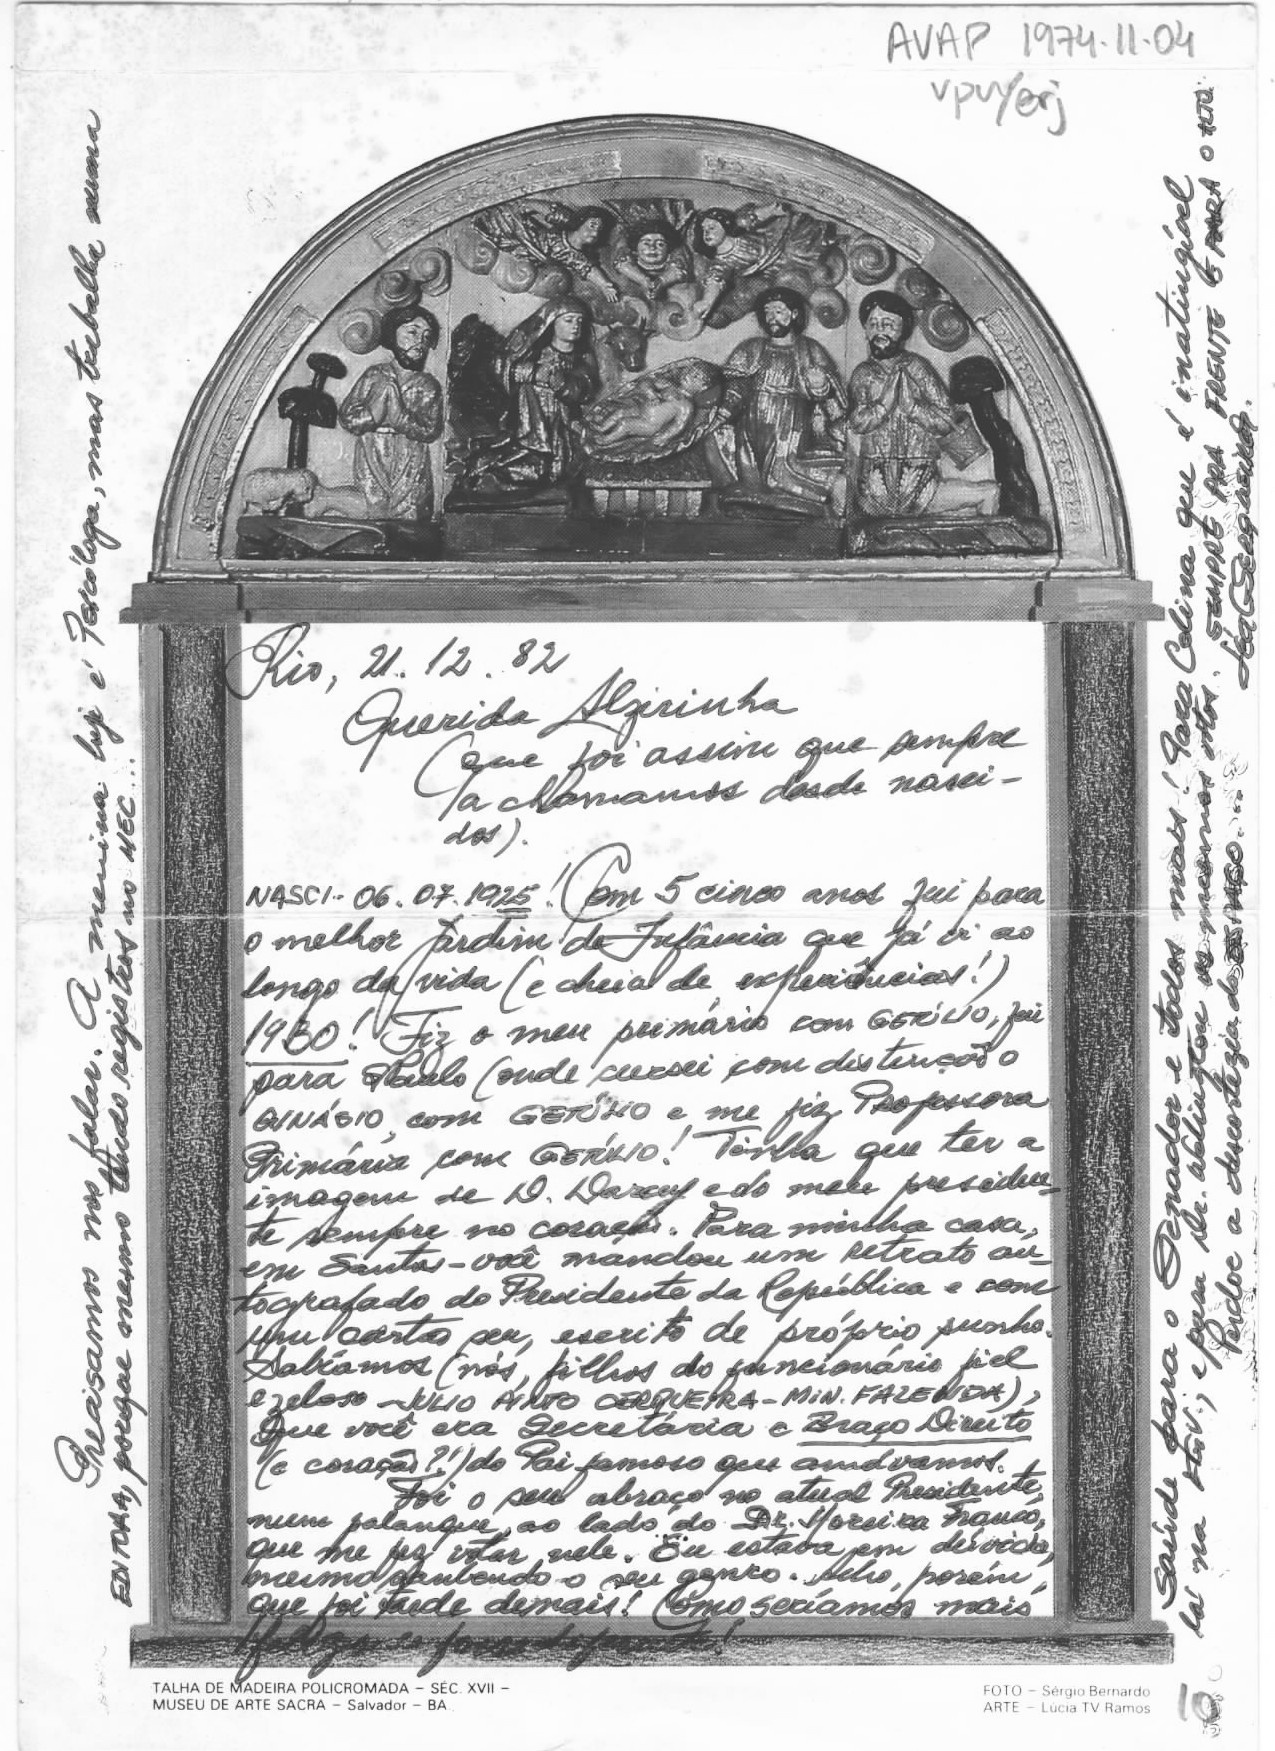 AVAP 1974.11.04
vpu/erj
Rio, 21.12.82
Querida Alzirinha
(que foi assim que sempre
a chamamos desde nasci-
dos).
NASCI - 06.07.1925! Com 5 cinco anos fui para
o melhor Jardim de Infância que já vi ao
longo da vida (e cheia de experiências!)
1930! Fiz o meu primário com GETÚLIO, fui
para S. Paulo (onde cursei com distinção o
GINÁSIO, com GETÚLIO e me fiz Professora
Primária com GETÚLIO! Tinha que ter a
imagem de D. Darcy e do meu presiden-
te sempre no coração. Para minha casa,
em Santos - você mandou um retrato au-
tografado do Presidente da República e com
um cartão seu, escrito de próprio punho.
Sabíamos (nós, filhos do funcionário fiel
e zeloso - JULIO PINTO CERQUEIRA - MIN. FAZENDA),
Que você era Secretária e Braço Direito
(e coração?!) do Pai famoso que amávamos.
Foi o seu abraço no atual Presidente,
num palanque, ao lado do Dr. Moreira Franco,
que me fez votar nele. Eu estava em dúvida,
mesmo sabendo o seu genro. Acho, porém,
que foi tarde demais! Como seríamos mais
Precisamos nos falar. A menina hoje é Psicóloga, mas trabalha numa
EDITORA, porque mesmo tendo registros no MEC...
Saúde para o Senador e todos mais! Para Celina que é inatingível
lá na, e para Dr. Wellington os mesmos votos. SEMPRE PRA FRENTE E PARA O ALTO.
Perdoe a descortezia do ESPAÇO...
Léa Cerqueira.
TALHA DE MADEIRA POLICROMADA – SÉC. XVII –
MUSEU DE ARTE SACRA – Salvador – BA.
FOTO – Sérgio Bernardo
ARTE – Lúcia TV Ramos
10